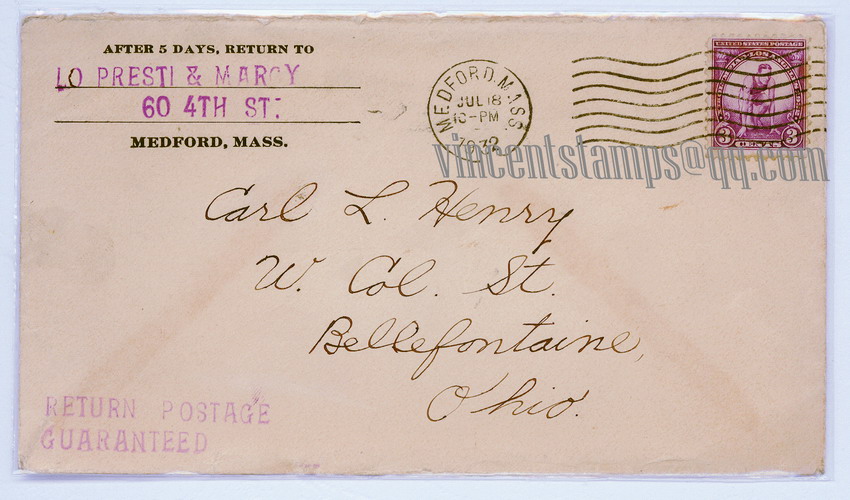 AFTER 5 DAYS, RETURN TO
LO PRESTI & MARCY
60 4TH ST.
MEDFORD, MASS.
MEDFORD, MASS
JUL 18
10-PM
1932
UNITED STATES POSTAGE
3 CENTS 3
vincentstamps@qq.com
Carl L. Henry
W. Col. St.
Bellefontaine,
Ohio.
RETURN POSTAGE
GUARANTEED